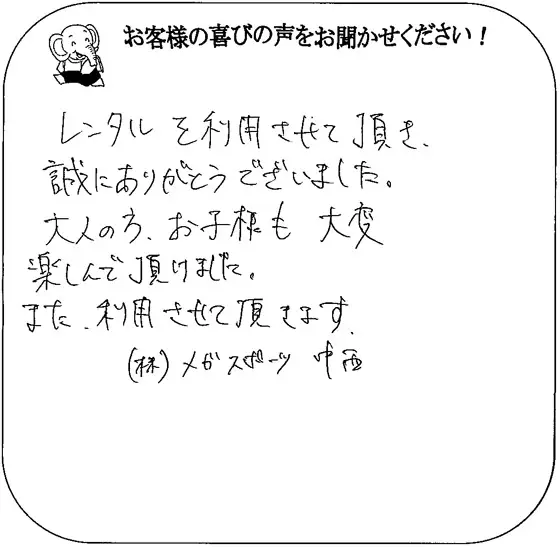 お客様の喜びの声をお聞かせください！
レンタルを利用させて頂き、
誠にありがとうございました。
大人の方、お子様も 大変
楽しんで頂けました。
また、利用させて頂きます。
(株)メガスポーツ 中西